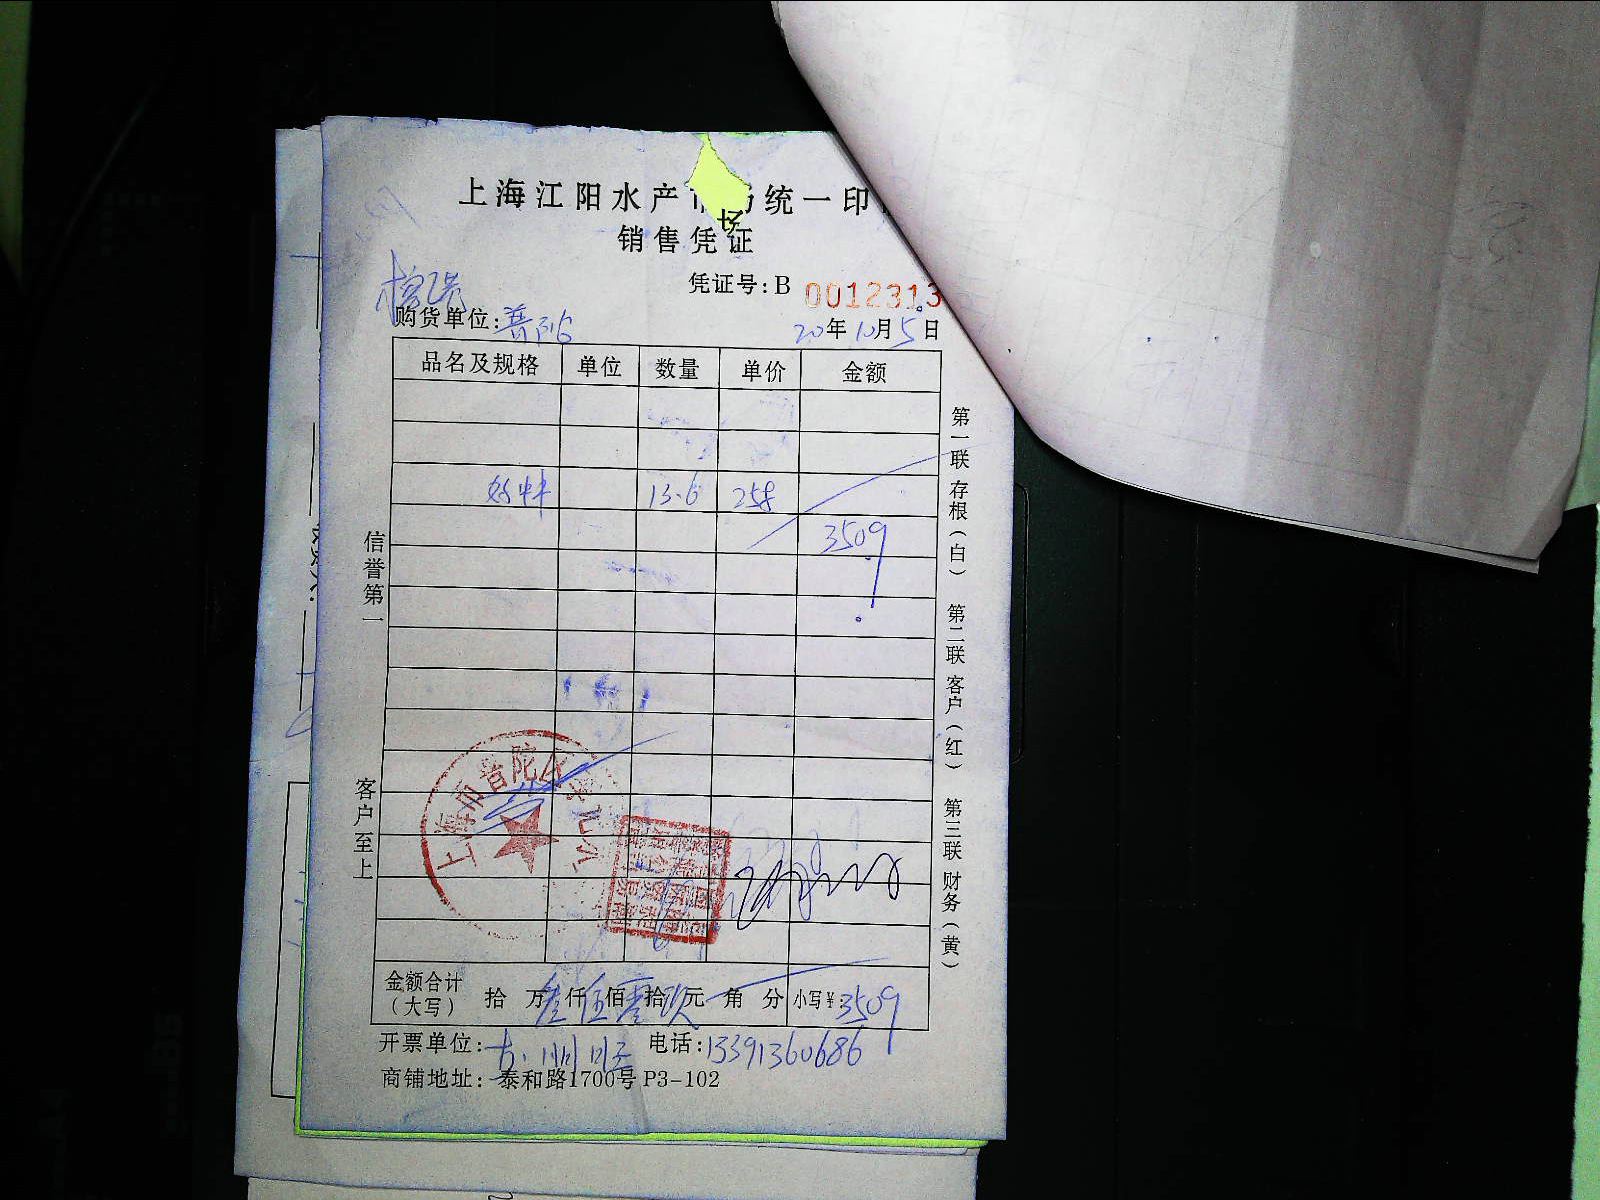 上海江阳水产市场统一印
销售凭证
凭证号：B 0012313
购货单位：普陀
20年10月5日
品名及规格 单位 数量 单价 金额
13.6 258
3509
信誉第一
客户至上
第一联 存根（白） 第二联 客户（红） 第三联 财务（黄）
上海市普陀区
金额合计（大写） 拾 万叁仟伍佰零拾玖元 角 分 小写￥：3509
开票单位：
电话：13391360686
商铺地址：泰和路1700号 P3-102